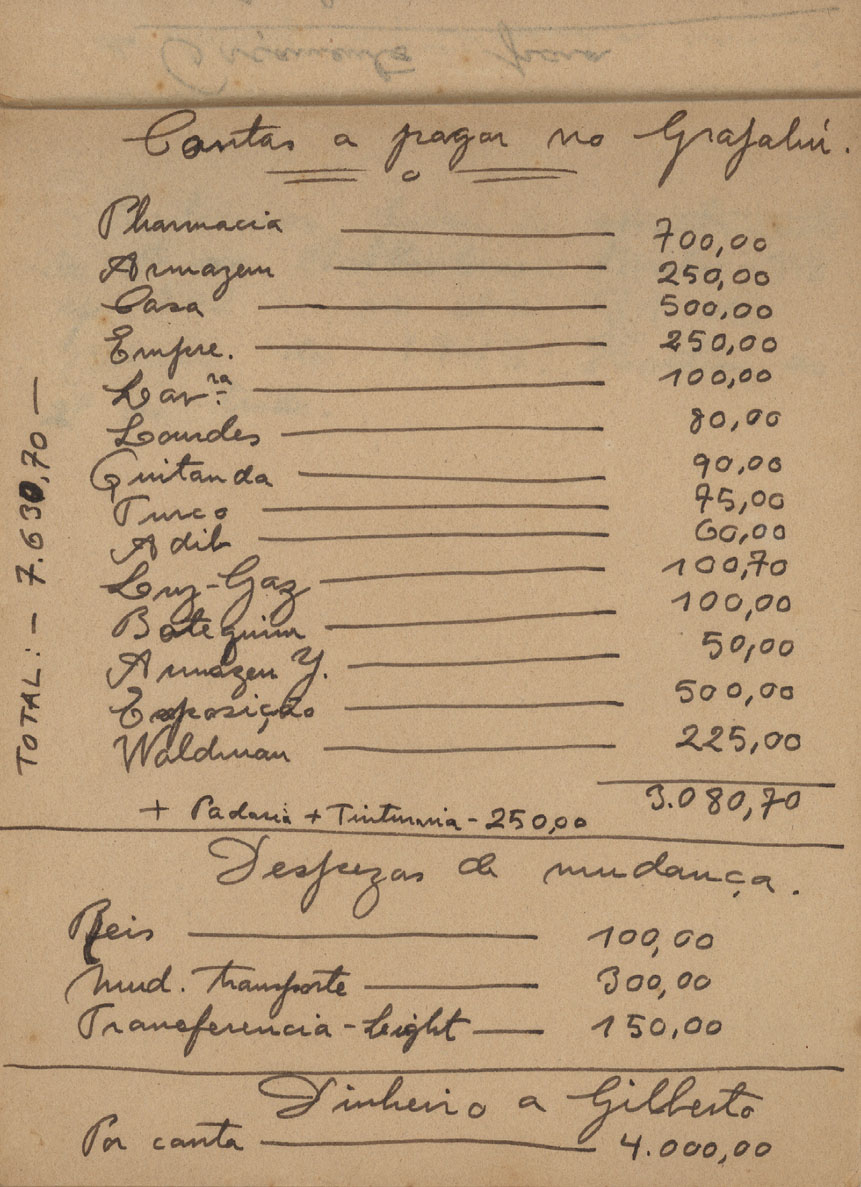 Contas a pagar no Grajahú.
Pharmacia — 700,00
Armazem — 250,00
Casa — 500,00
Empre. — 250,00
Lavra. — 100,00
Lourdes — 80,00
Quitanda — 90,00
Turco — 75,00
Adib — 60,00
Luz-Gaz — 100,70
Botequim — 100,00
Armazem Y. — 50,00
Exposição — 500,00
Waldman — 225,00
3.080,70
+ Padaria + Tinturaria - 250,00
TOTAL:- 7.630,70 —
Despezas de mudança.
Reis — 100,00
Mud. transporte — 300,00
Transferencia - Light — 150,00
Dinheiro a Gilberto
Por conta — 4.000,00